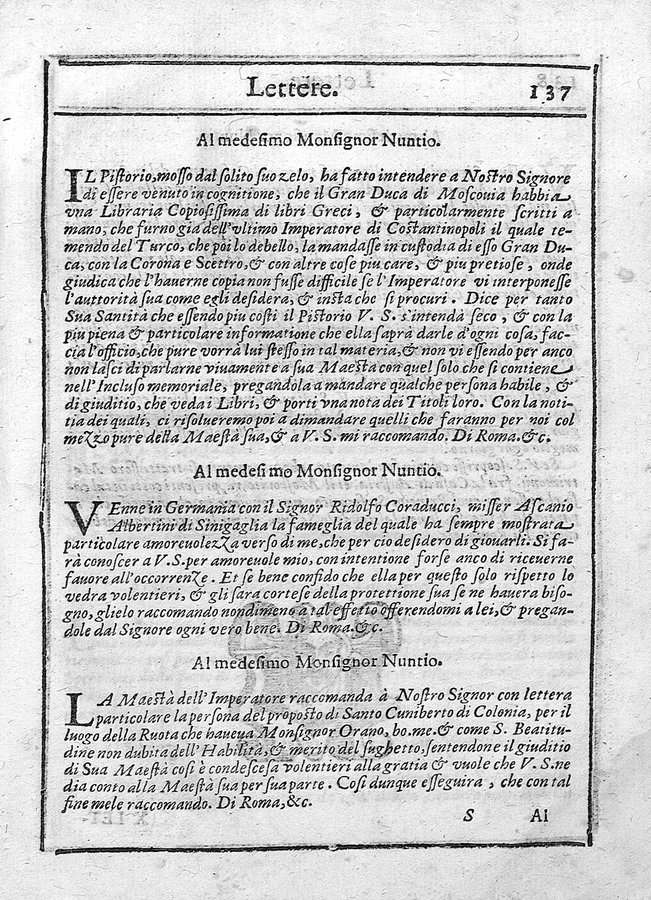 Lettere. 137
Al medesimo Monsignor Nuntio.
IL Pistorio, mosso dal solito suo zelo, ha fatto intendere a Nostro Signore
di essere venuto in cognitione, che il Gran Duca di Moscouia habbia
vna Libraria Copiosissima di libri Greci, & particolarmente scritti a
mano, che furno gia dell'vltimo Imperatore di Costantinopoli il quale te-
mendo del Turco, che poi lo debello, la mandasse in custodia di esso Gran Du-
ca, con la Corona e Scettro, & con altre cose piu care, & piu pretiose, onde
giudica che l'hauerne copia non fusse difficile se l'Imperatore vi interponesse
l'auttorità sua come egli desidera, & insta che si procuri. Dice per tanto
Sua Santità che essendo piu costi il Pistorio V. S. s'intenda seco, & con la
piu piena & particolare informatione che ella saprà darle d'ogni cosa, fac-
cia l'officio, che pure vorrà lui stesso in tal materia, & non vi essendo per anco
non lasci di parlarne viuamente a sua Maestà con quel solo che si contiene
nell'Incluso memoriale, pregandola a mandare qualche persona habile, &
di giuditio, che veda i Libri, & porti vna nota dei Titoli loro. Con la noti-
tia dei quali, ci risolueremo poi a dimandare quelli che faranno per noi col
mezzo pure della Maestà sua, & a V. S. mi raccomando. Di Roma. &c.
Al medesimo Monsignor Nuntio.
VEnne in Germania con il Signor Ridolfo Coraducci, misser Ascanio
Albertini di Sinigaglia la fameglia del quale ha sempre mostrata
particolare amoreuolezza verso di me, che per cio desidero di giouarli. Si fa-
rà conoscer a V. S. per amoreuole mio, con intentione forse anco di riceuerne
fauore all'occorrenze. Et se bene confido che ella per questo solo rispetto lo
vedra volentieri, & gli sara cortese della protettione sua se ne hauera biso-
gno, glielo raccomando nondimeno à tal effetto offerendomi a lei, & pregan-
dole dal Signore ogni vero bene. Di Roma. &c.
Al medesimo Monsignor Nuntio.
LA Maestà dell'Imperatore raccomanda à Nostro Signor con lettera
particolare la persona del proposto di Santo Cuniberto di Colonia, per il
luogo della Ruota che haueua Monsignor Orano, bo. me. & come S. Beatitu-
dine non dubita dell'Habilità, & merito del sughetto, sentendone il giuditio
di Sua Maestà cosi è condescesa volentieri alla gratia & vuole che V. S. ne
dia conto alla Maestà sua per sua parte. Cosi dunque esseguira, che con tal
fine mele raccomando. Di Roma, &c.
S Al